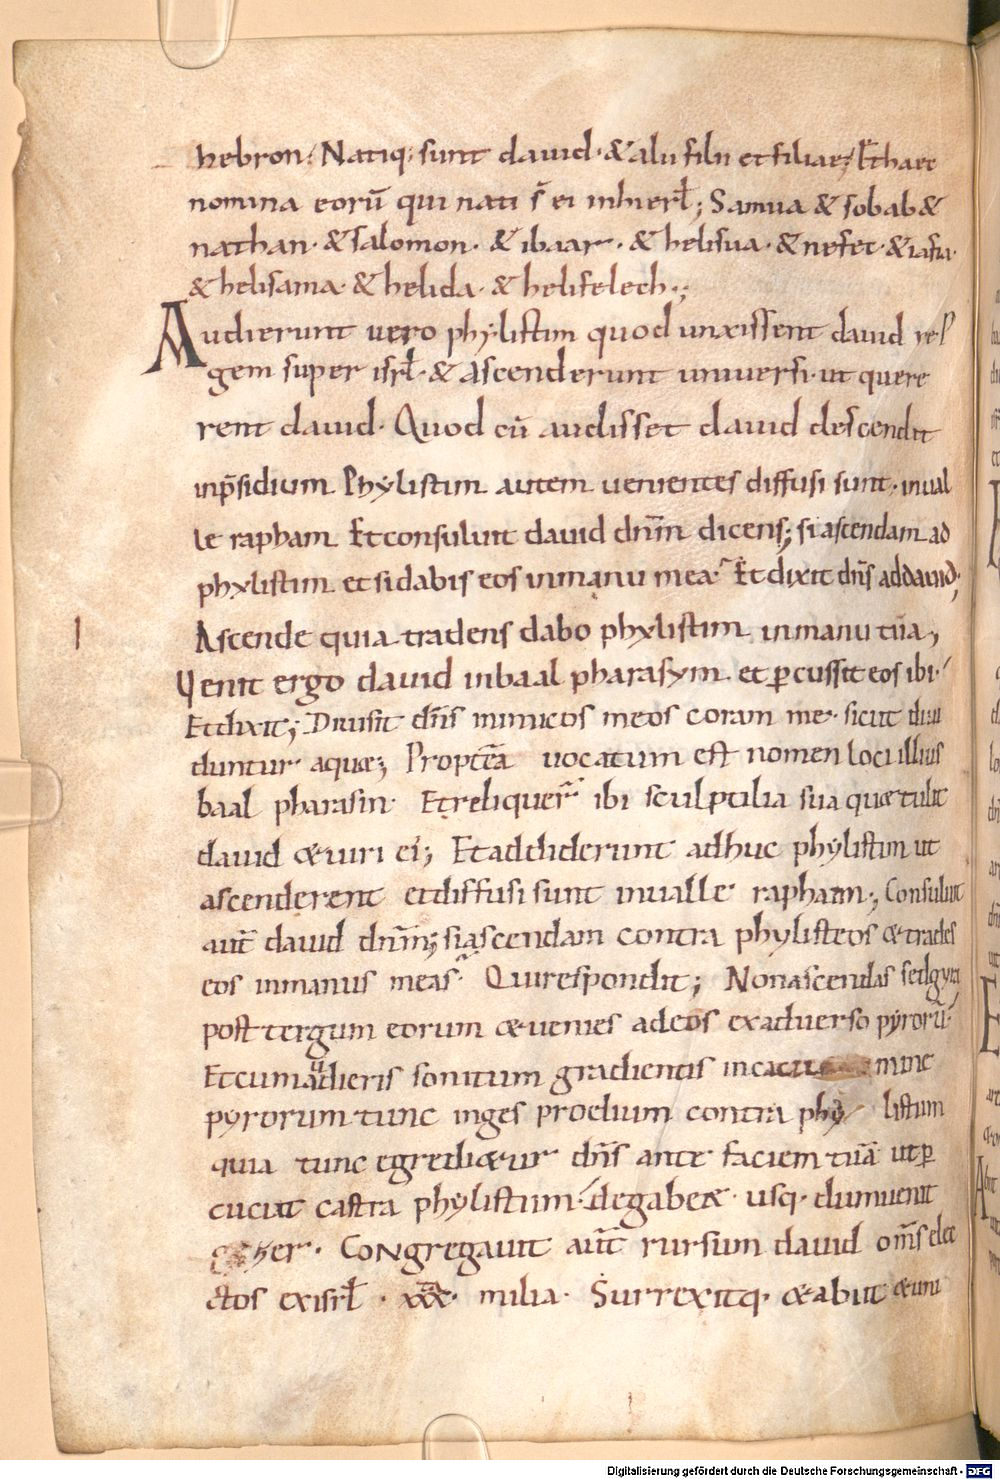 hebron. Natiq; sunt dauid · & alii filii et filiae; Et haec
nomina eorū qui nati s̄ ei inhierl̄; Samua & sobab &
nathan · & salomon · & ibaar · & helisua · & nefet · & iafia ·
& helisama · & helida · & helifelech ·;
Audierunt uero phylistim quod unxissent dauid re
gem super isrl̄ · & ascenderunt uniuersi · ut quere
rent dauid · Quod cū audisset dauid descendit
inp̄sidium Phylistim autem uenientes diffusi sunt · inual
le rapham Et consuluit dauid dnm̄ dicens; si ascendam ad
phylistim et si dabis eos inmanu mea · Et dixit dn̄s ad dauid;
Ascende quia tradens dabo phylistim inmanu tua;
Uenit ergo dauid inbaal pharasym · et ꝑcussit eos ibi ·
Et dixit; Diuisit dn̄s inimicos meos coram me · sicut diui
duntur aquae; Proptea uocatum est nomen loci illius
baal pharasin · Et reliquer̄ ibi sculptilia sua quae tulit
dauid et uiri ei; Et addiderunt adhuc phylistim ut
ascenderent et diffusi sunt inualle rapham; Consuluit
aut̄ dauid dnm̄; si ascendam contra phylisteos et trades
eos inmanus meas · Qui respondit; Non ascendas sed gyra
post tergum eorum et uenies ad eos exaduerso pyrorū ·
Et cum audieris sonitum gradientis incacu mine
pyrorum tunc inges proelium contra phy listim
quia tunc egredietur dn̄s ante faciem tuā ut ꝑ
cuciat castra phylistim · degabee · usq; dum uenit
gezer · Congregauit aut̄ rursum dauid om̄s elec
ctos exisrl̄ · xxx · milia · Surrexitq; et abiit et uni